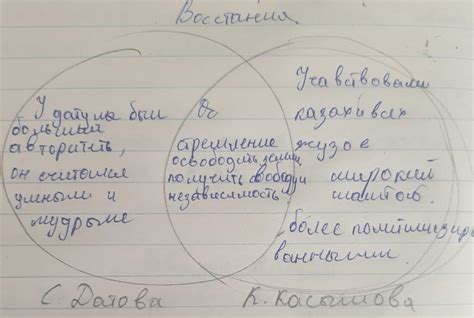 Восстания.
У датулы был
больший
авторитет,
он считался
умным и
мудрым
стремление
освободить земли,
получить свободу и
независимость.
Учавствовали
казахи всех
жузов
широкий
масштаб.
более политизиро
ванными.
С Датова
К. Касымова